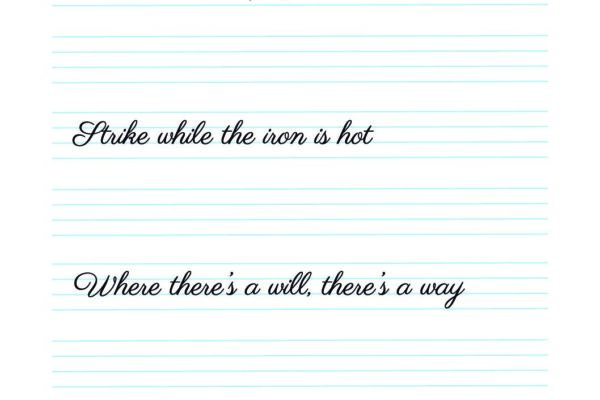 Strike while the iron is hot
Where there's a will, there's a way